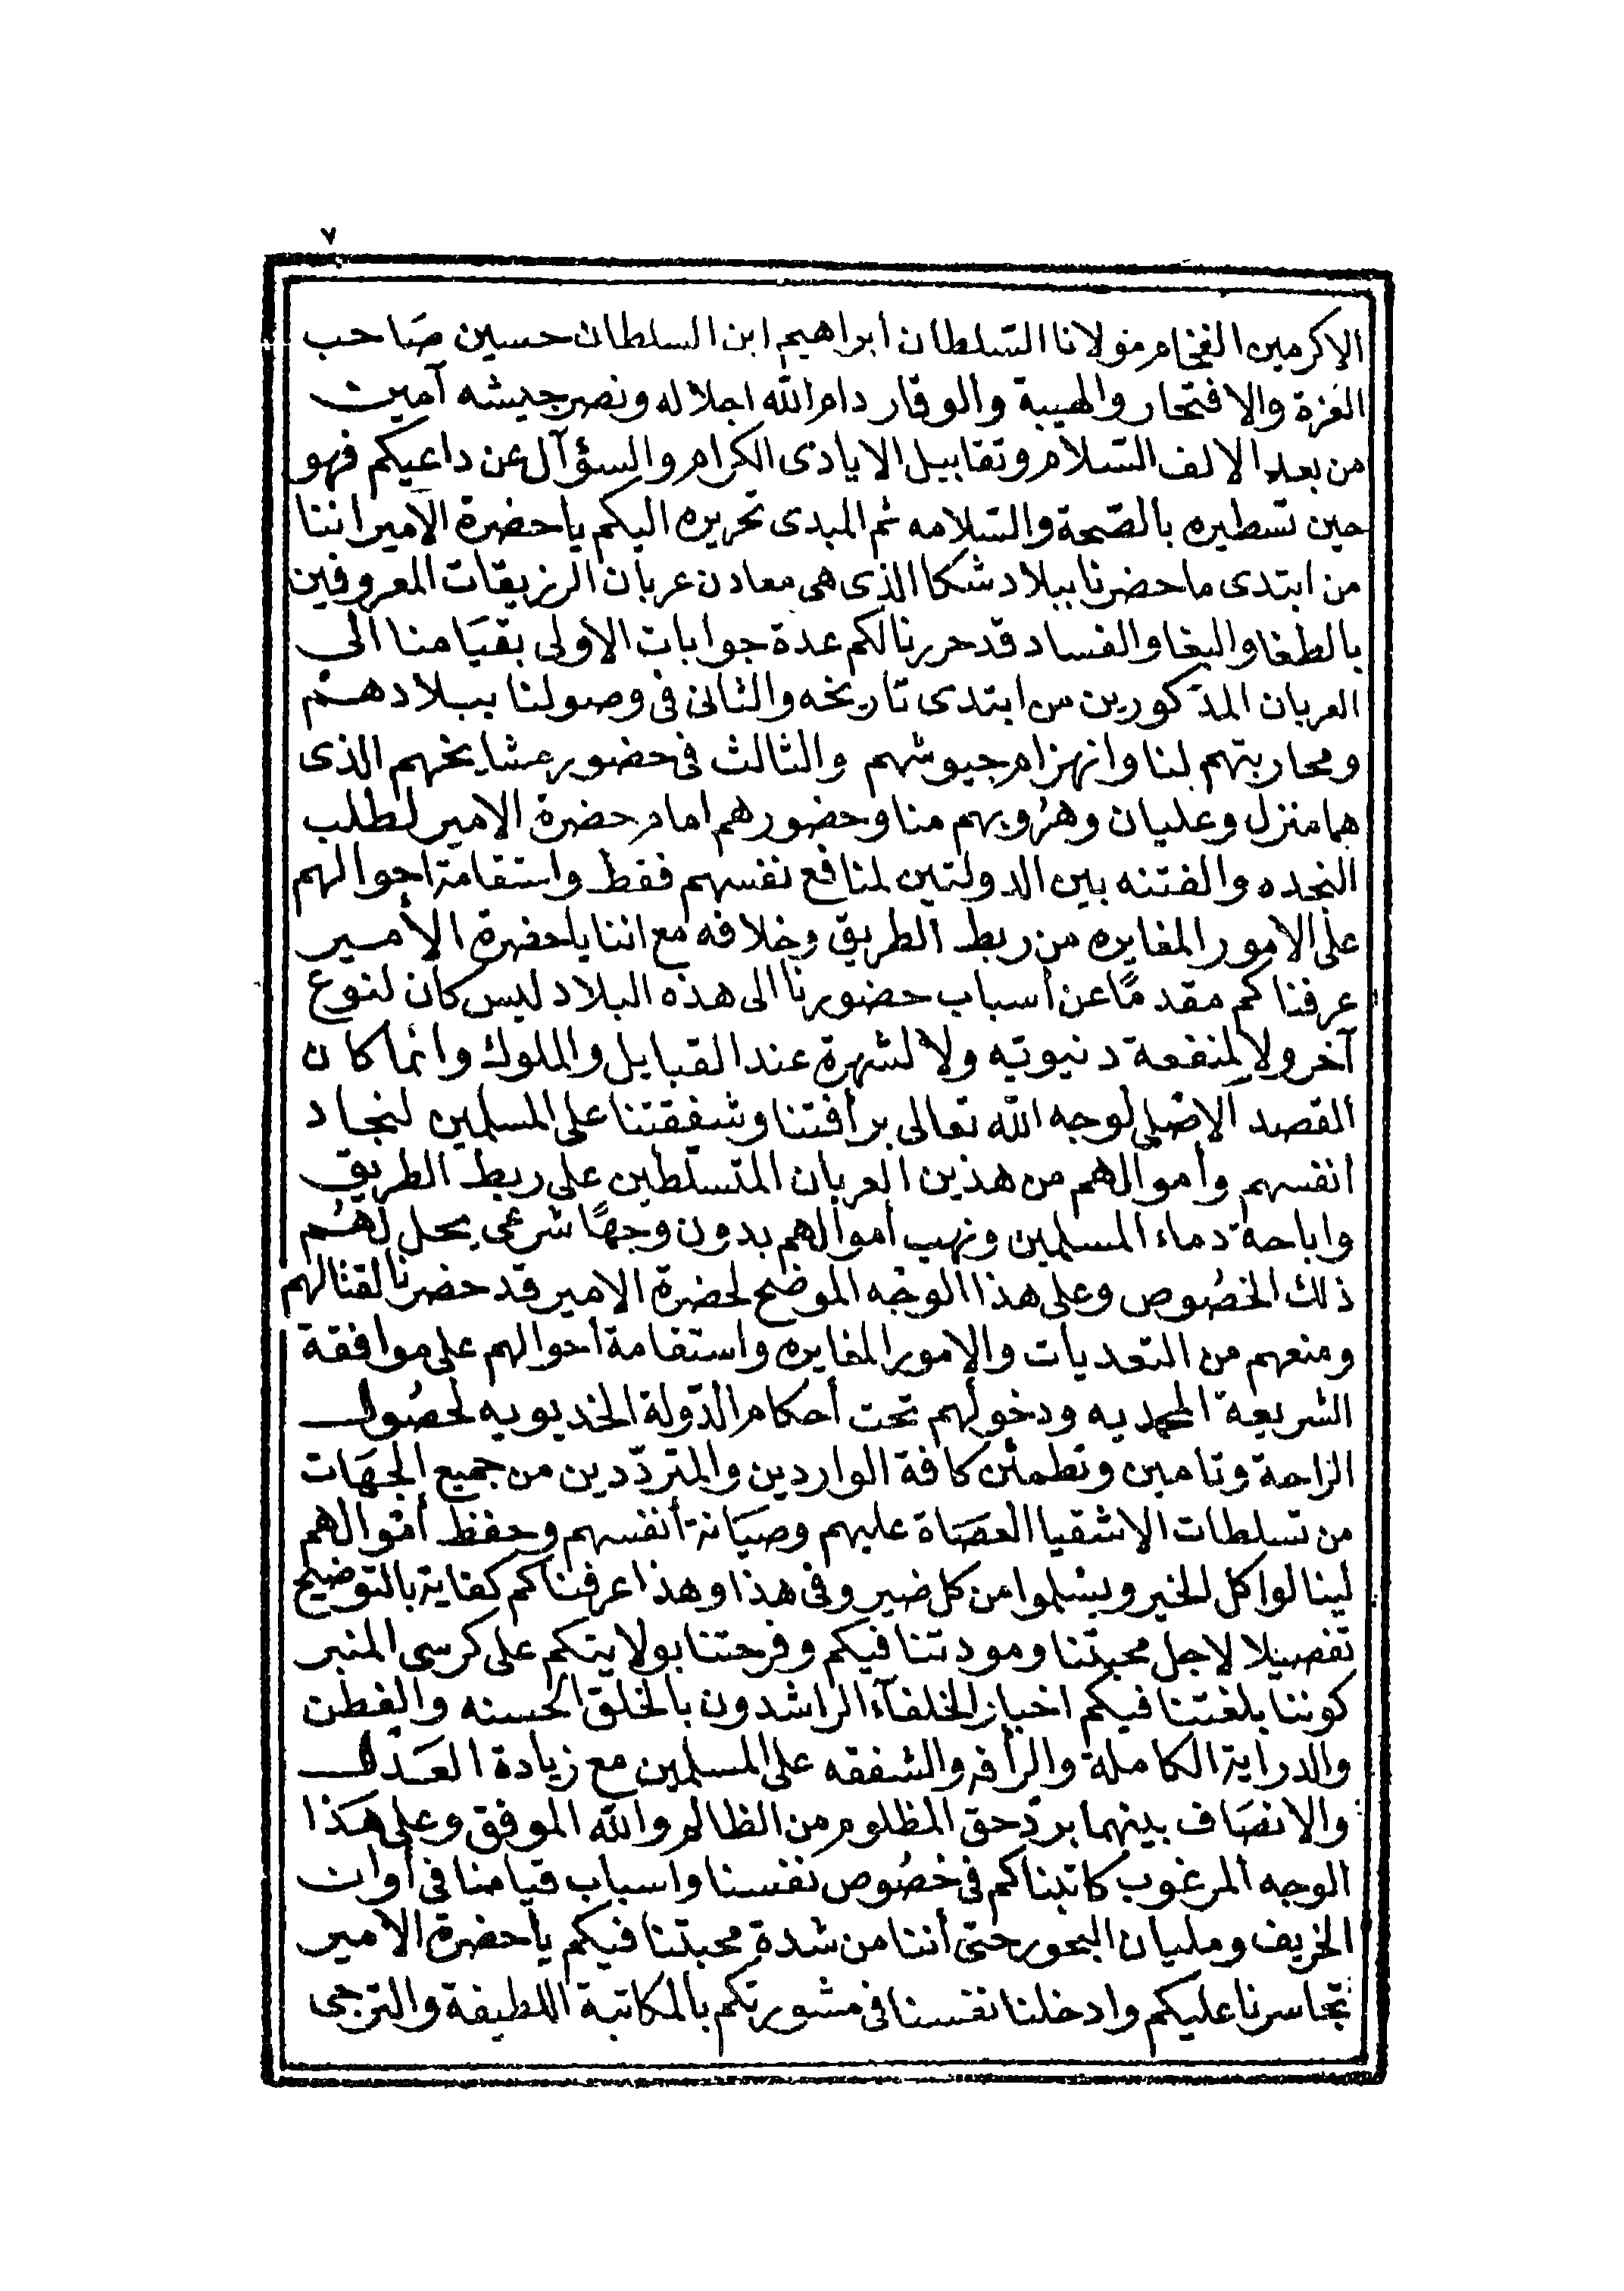 ٧
الاكرمين الفخام مولانا السّلطان ابراهيم ابن السلطان حسين صَاحب
العَزة والافتخار والهيبة والوقار دام الله اجلاله ونصر جيشه آمين
من بعد الالف السّلام وتقابيل الايادى الكرام والسؤآل عن داعيكم فهو
حين تسطيره بالصّحة والسّلامه ثم المبدى تحريره اليكم ياحضرة الآمير اننا
من ابتدى ما حضرنا ببلاد شكا الذى هى معادن عربان الرزيقات المعروفين
بالطغا والبغا والفساد قد حررنا لكم عدة جوابات الاولى بقيَامنا الى
العربان المذكورين من ابتدى تاريخه والثانى فى وصولنا ببلادهم
ومحاربتهم لنا وانهزام جيوشهم والثالث فى حضور مشايخهم الذى
هما منزل وعليان وهرُوبهم منا وحضورهم امام حضرة الامير لطلب
النجده والفتنه بين الدولتين لمنافع نفسهم فقط واستقامة احوالهم
على الامور المغايره من ربط الطريق وخلافه مع اننا ياحضرة الأمير
عرفناكم مقدمًا عن أسباب حضورنا الى هذه البلاد ليس كان لنوع
آخر ولا لمنفعة دنيويّه ولا لشهرة عند القبايل والملوك وانما كان
ألقصد الاصْلى لوجه الله تعالى برأفتنا وشفقتنا على المسلمين لنجاد
أنفسهم وأموالهم من هذين العربان المتسلّطين على ربط الطريق
واباحة دماء المسلمين ونهب أموالهم بدون وجهًا شرعى يحل لهُم
ذلك الخصُوص وعلى هذا الوجْه الموضح لحضرة الامير قد حضرنا لقتالهم
ومنعهم من التعديات والامور المغايره واستقامة أحوالهم على موافقة
الشريعة المحمديه ودخولهم تحت أحكام الدّولة الخديويه لحصُول
الراحة وتامين وتطمئن كافة الواردين والمتردّدين من جميع الجهَات
من تسلطات الاشقيا العصَاة عليهم وصيَانة أنفسهم وحفظ أموالهم
لينالوا كل الخير ويسْلموا من كل ضير وفى هذا وهذا عرفناكم كفاية بالتوضيح
تفصيلا لاجل محبتنا ومودتنا فيكم وفرحتنا بولايتكم على كرسى المنبر
كوننا بلغتنا فيكم اخبار الخلفآء الراشدون بالخلق الحسنه والفطن
والدراية الكاملة والرأفه والشفقه على المسلمين مع زيادة العَدْل
والانصَاف بينهما بردّ حق المظلوم من الظالم والله الموفق وعلى هَذا
الوجه المرغوب كاتبناكم فى خصُوص نفسنا واسباب قيامنا فى أوان
الخريف ومليان البحور حتى أننا من شدة محبتنا فيكم ياحضرة الامير
تجاسرنا عليكم وادخلنا نفسنا فى مشورتكم بالمكاتبة اللطيفة والترجى